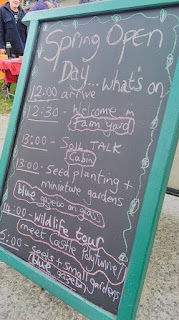 Spring Open
Day... What's on
12:00 arrive
12:30 - Welcome in
farm yard
13:00 - Soil TALK
Cabin
13:00 - Seed planting +
miniature gardens
blue gazebo on grass
14:00 - wildlife tour
meet Castle Polytunnel
15:00 - Seeds + Small gardens
blue gazebo